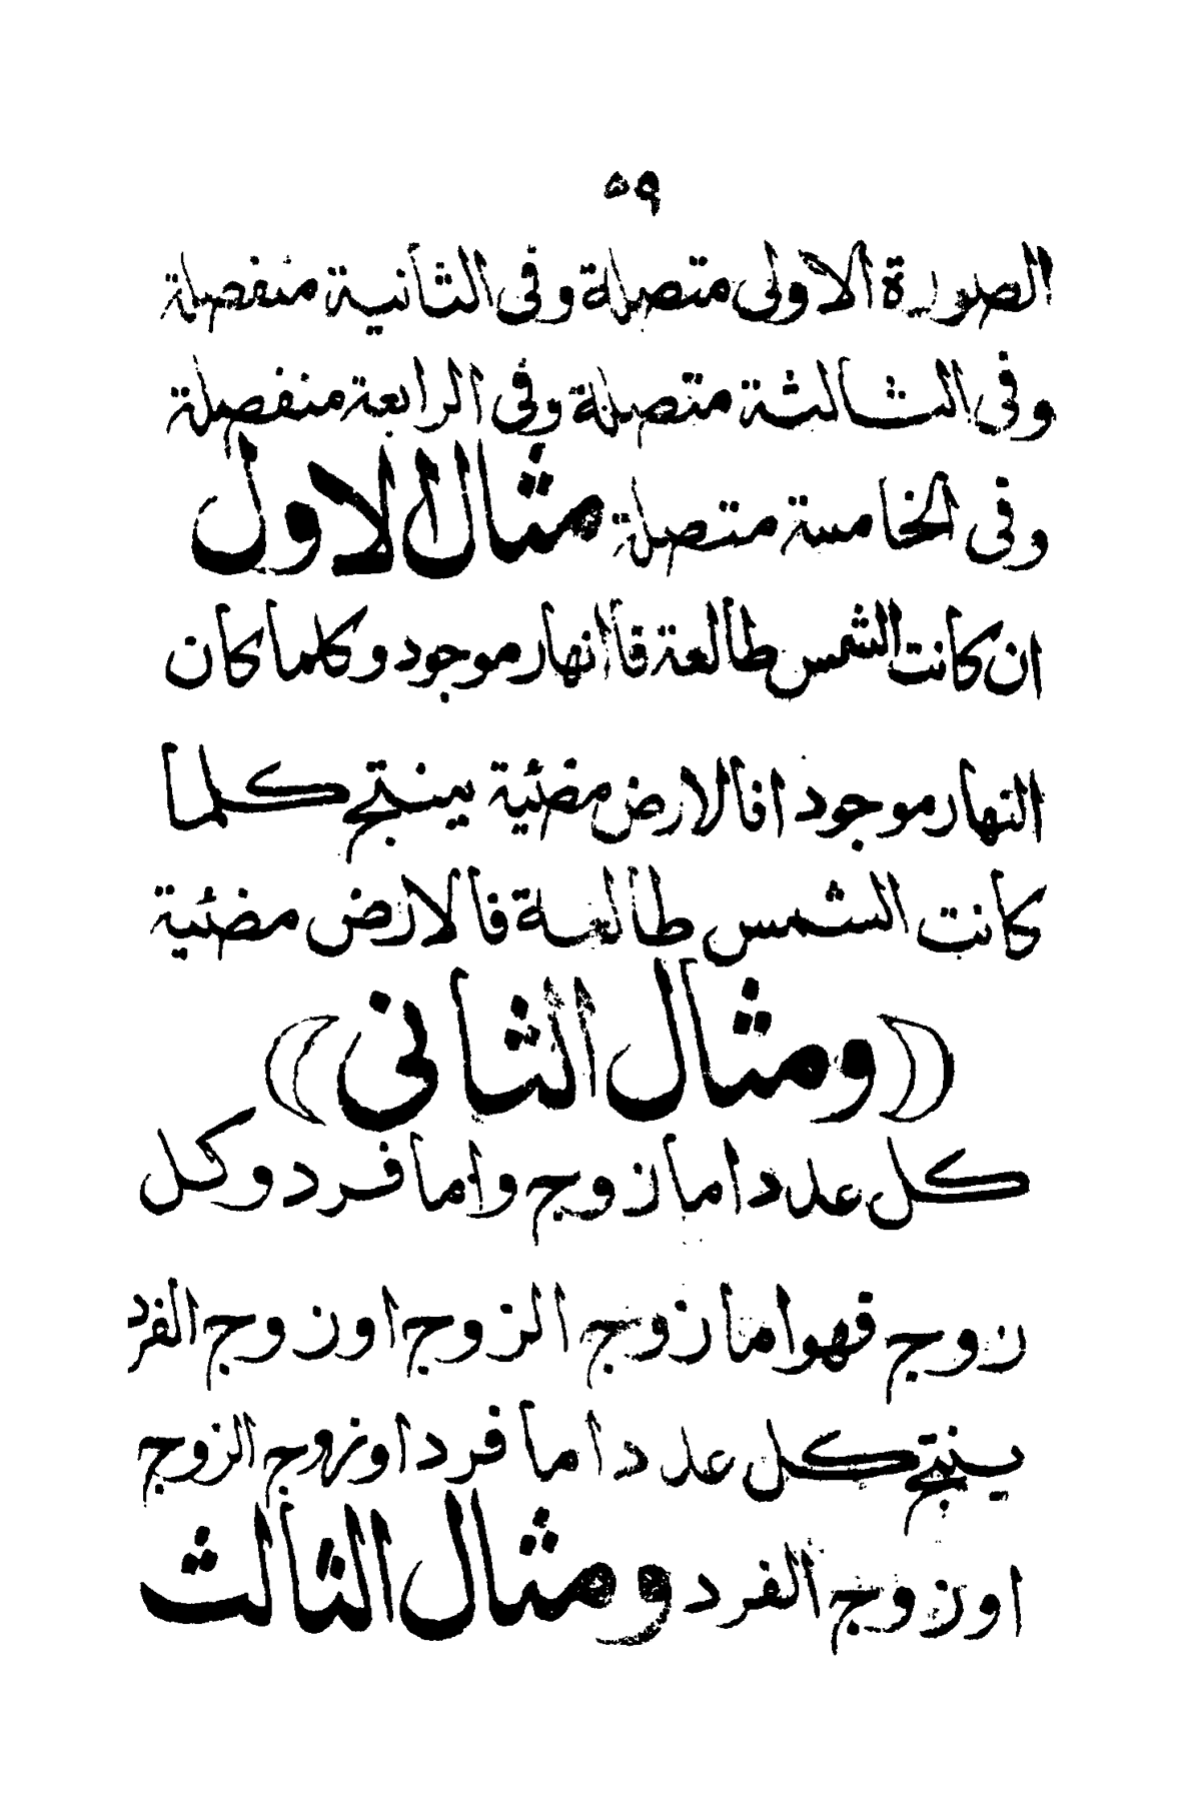 ٥٩
الصورة الاولى متصلة وفى الثانية منفصلة
وفى الثالثة متصلة وفى الرابعة منفصلة
وفى الخامسة متصلة مثال الاول
ان كانت الشمس طالعة فالنهار موجود وكلما كان
النهار موجود افالارض مضئية ينتج كلما
كانت الشمس طالعة فالارض مضئية
(ومثال الثانى)
كل عدد اما زوج واما فرد وكل
زوج فهو اما زوج الزوج او زوج الفرد
ينتج كل عدد اما فرد او زوج الزوج
او زوج الفرد ومثال الثالث